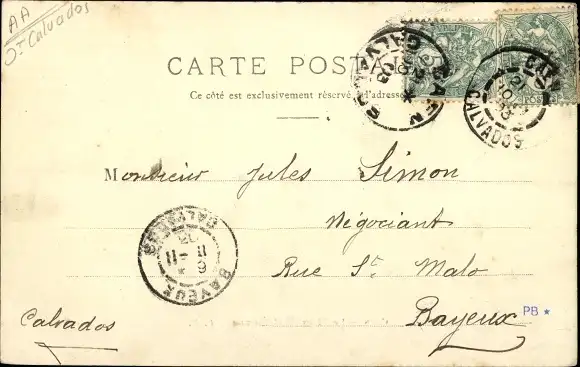 AA
Jⁿ Calvados
CARTE POSTALE
Ce côté est exclusivement réservé à l'adresse
CAEN
CALVADOS
CAEN
CALVADOS
Monsieur Jules Simon
Négociant
Rue St. Malo
Bayeux
Calvados
BAYEUX
CALVADOS
11 - 11
PB *